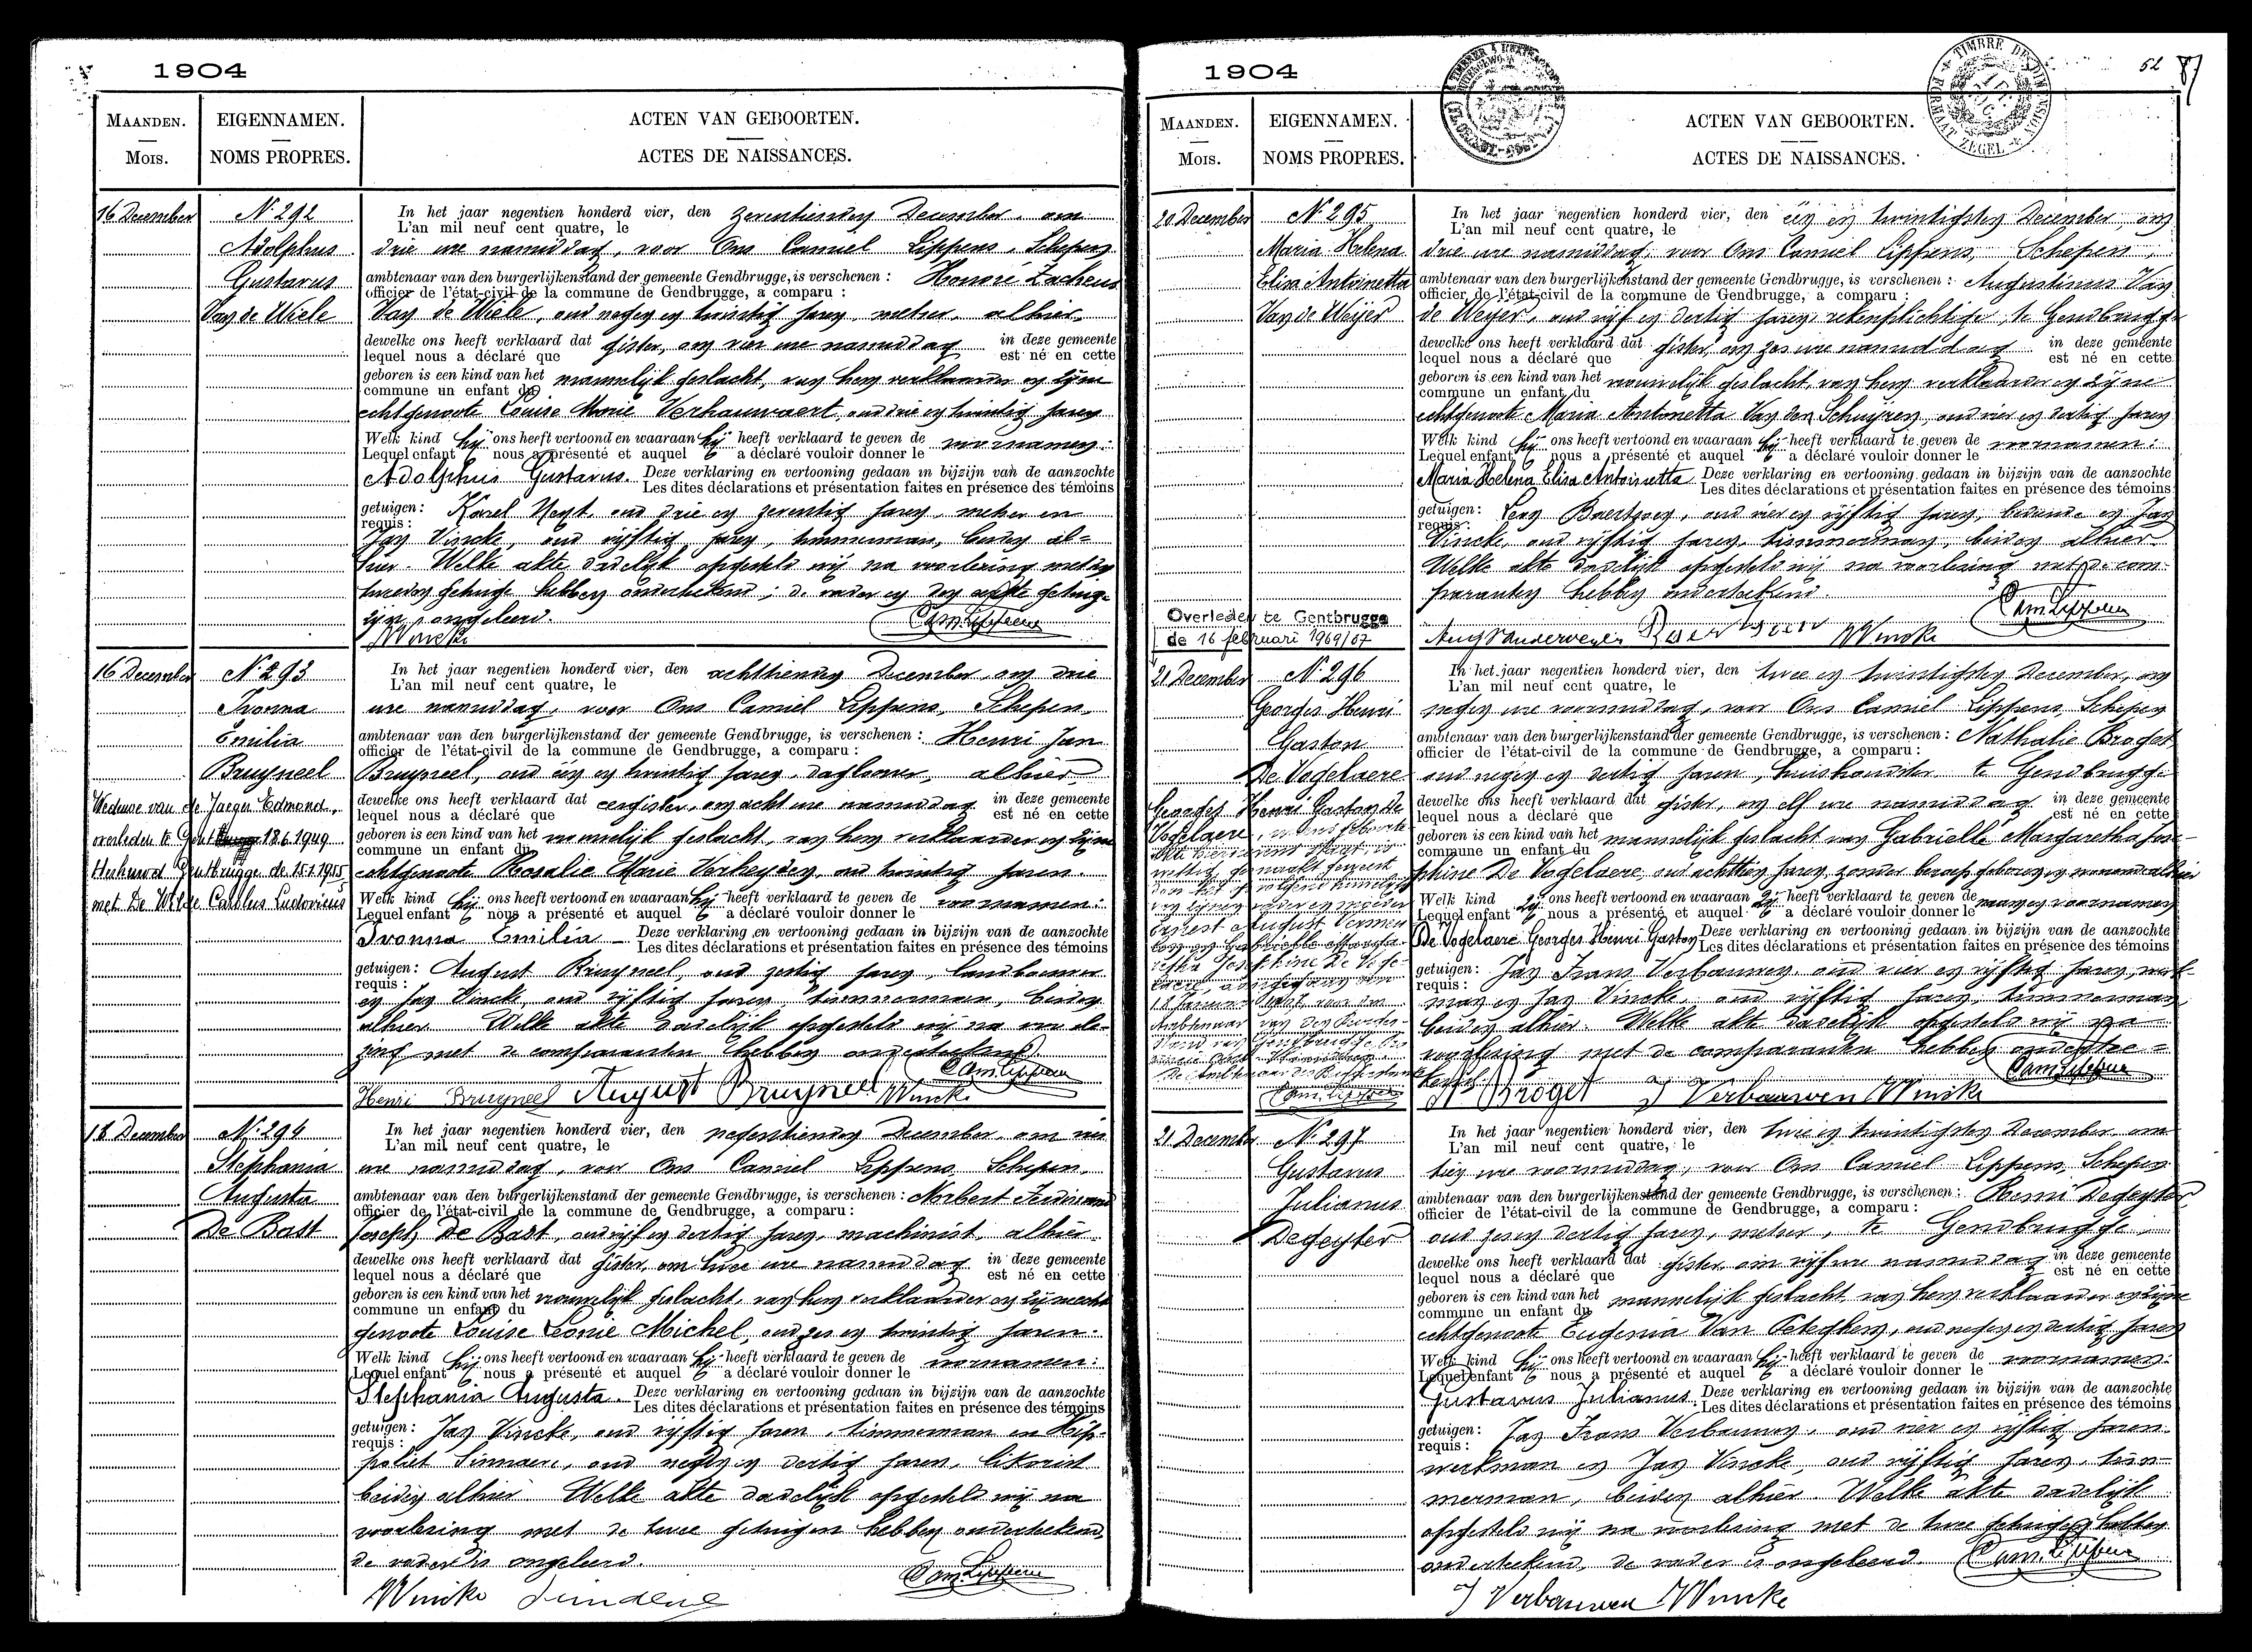 1904
MAANDEN.
Mois.
EIGENNAMEN.
NOMS PROPRES.
ACTEN VAN GEBOORTEN.
ACTES DE NAISSANCES.
16 December
N. 292
Adolphus
Gustavus
Van de Wiele
In het jaar negentien honderd vier, den zeventienden December, om
L'an mil neuf cent quatre, le
drie ure namiddag, voor Ons Camiel Lippens, Schepen
ambtenaar van den burgerlijkenstand der gemeente Gendbrugge, is verschenen : Honoré Zacheus
officier de l'état-civil de la commune de Gendbrugge, a comparu :
Van de Wiele, oud negen en twintig jaren, metser, alhier
dewelke ons heeft verklaard dat gister, om vier ure namiddag in deze gemeente
lequel nous a déclaré que est né en cette
geboren is een kind van het mannelijk geslacht, van hem verklaarder en zijne
commune un enfant du
echtgenoote Louise Marie Verhauwaert, oud drie en twintig jaren
Welk kind hij ons heeft vertoond en waaraan hij heeft verklaard te geven de voornamen:
Lequel enfant nous a présenté et auquel a déclaré vouloir donner le
Adolphus Gustavus. Deze verklaring en vertooning gedaan in bijzijn van de aanzochte
Les dites déclarations et présentation faites en présence des témoins
getuigen: Karel Neyt, oud drie en zeventig jaren, metser en
requis :
Jan Vincke, oud vijftig jaren, timmerman, beiden al=
hier. Welke akte dadelijk opgesteld wij na voorlezing met den
tweeden getuige hebben onderteekend; de vader en den eersten getuige
zijn ongeleerd.
JVincke Cam. Lippens
16 December
N. 293
Ivonna
Emilia
Bruyneel
Weduwe van de Jaeger Edmond,
overleden te Gent 18.6.1949
Herhuwd Gentbrugge de 15.1.1955
met De Wilde Carolus Ludovicus
In het jaar negentien honderd vier, den achttienden December, om drie
L'an mil neuf cent quatre, le
ure namiddag, voor Ons Camiel Lippens, Schepen,
ambtenaar van den burgerlijkenstand der gemeente Gendbrugge, is verschenen : Henri Jan
officier de l'état-civil de la commune de Gendbrugge, a comparu :
Bruyneel, oud één en twintig jaren, daglooner, alhier
dewelke ons heeft verklaard dat eergister, om acht ure namiddag in deze gemeente
lequel nous a déclaré que est né en cette
geboren is een kind van het vrouwelijk geslacht, van hem verklaarder en zijne
commune un enfant du
echtgenoote Rosalie Marie Verheyden, oud twintig jaren.
Welk kind hij ons heeft vertoond en waaraan hij heeft verklaard te geven de voornamen:
Lequel enfant nous a présenté et auquel a déclaré vouloir donner le
Ivonna Emilia Deze verklaring en vertooning gedaan in bijzijn van de aanzochte
Les dites déclarations et présentation faites en présence des témoins
getuigen: August Bruyneel, oud zestig jaren, landbouwer
requis :
en Jan Vincke, oud vijftig jaren, timmerman, beiden
alhier. Welke akte dadelijk opgesteld wij na voorle-
zing met de comparanten hebben onderteekend.
Cam. Lippens
Henri Bruyneel August Bruyneel JVincke
18 December
N. 294
Stephania
Augusta
De Bast
In het jaar negentien honderd vier, den negentienden December, om vier
L'an mil neuf cent quatre, le
ure namiddag, voor Ons Camiel Lippens, Schepen.
ambtenaar van den burgerlijkenstand der gemeente Gendbrugge, is verschenen : Norbert Ferdinand
officier de l'état-civil de la commune de Gendbrugge, a comparu :
Joseph De Bast, oud vijf en dertig jaren, machinist, alhier.
dewelke ons heeft verklaard dat gister, om twee ure namiddag in deze gemeente
lequel nous a déclaré que est né en cette
geboren is een kind van het vrouwelijk geslacht, van hem verklaarder en zijne echt
commune un enfant du
genoote Louise Leonie Michel, oud zes en twintig jaren.
Welk kind hij ons heeft vertoond en waaraan hij heeft verklaard te geven de voornamen:
Lequel enfant nous a présenté et auquel a déclaré vouloir donner le
Stephania Augusta. Deze verklaring en vertooning gedaan in bijzijn van de aanzochte
Les dites déclarations et présentation faites en présence des témoins
getuigen: Jan Vincke, oud vijftig jaren, timmerman en Hip-
requis :
poliet oud negen en dertig jaren,
beiden alhier Welke akte dadelijk opgesteld wij na
voorlezing met de twee getuigen hebben onderteekend,
de vader is ongeleerd.
Cam. Lippens
JVincke
1904
52
TIMBRE DE DIMENSION
FORMAAT ZEGEL
MAANDEN.
Mois.
EIGENNAMEN.
NOMS PROPRES.
ACTEN VAN GEBOORTEN.
ACTES DE NAISSANCES.
20 December
N. 295
Maria Helena
Elisa Antoinetta
Van de Weijer
Overleden te Gentbrugge
de 16 februari 1969/67
In het jaar negentien honderd vier, den één en twintigsten December, om
L'an mil neuf cent quatre, le
drie ure namiddag, voor Ons Camiel Lippens, Schepen,
ambtenaar van den burgerlijkenstand der gemeente Gendbrugge, is verschenen : Augustinus Van
officier de l'état-civil de la commune de Gendbrugge, a comparu :
de Weyer, oud vijf en dertig jaren, rekenplichtige, te Gendbrugge
dewelke ons heeft verklaard dat gister, om zes ure namiddag in deze gemeente
lequel nous a déclaré que est né en cette
geboren is een kind van het vrouwelijk geslacht, van hem verklaarder en zijne
commune un enfant du
echtgenoote Maria Antonetta Van den Schuijren, oud vier en dertig jaren
Welk kind hij ons heeft vertoond en waaraan hij heeft verklaard te geven de voornamen:
Lequel enfant nous a présenté et auquel a déclaré vouloir donner le
Maria Helena Elisa Antoinetta Deze verklaring en vertooning gedaan in bijzijn van de aanzochte
Les dites déclarations et présentation faites en présence des témoins
getuigen: Leon Baertsoen, oud vier en vijftig jaren, bediende en Jan
requis :
Vincke, oud vijftig jaren, timmerman, beiden alhier
Welke akte dadelijk opgesteld wij na voorlezing met de com-
paranten hebben onderteekend.
Cam. Lippens
Aug Vanderweyer Baertsoen JVincke
21 December
N. 296
Georges Henri
Gaston
De Vogelaere
Georges Henri Gaston de
Vogelaere
Ernest August
De Voge-
18 Januari
Cam. Lippens
In het jaar negentien honderd vier, den twee en twintigsten December, om
L'an mil neuf cent quatre, le
negen ure voormiddag, voor Ons Camiel Lippens, Schepen
ambtenaar van den burgerlijkenstand der gemeente Gendbrugge, is verschenen : Nathalie Broget
officier de l'état-civil de la commune de Gendbrugge, a comparu :
oud negen en dertig jaren, huishoudster te Gendbrugge
dewelke ons heeft verklaard dat gister, om elf ure namiddag in deze gemeente
lequel nous a déclaré que est né en cette
geboren is een kind van het mannelijk geslacht van Gabrielle Margaretha Jose-
commune un enfant du
phine De Vogelaere, oud achttien jaren, zonder beroep geboren en wonende alhier
Welk kind zij ons heeft vertoond en waaraan zij heeft verklaard te geven de naam en voornamen
Lequel enfant nous a présenté et auquel a déclaré vouloir donner le
De Vogelaere Georges Henri Gaston Deze verklaring en vertooning gedaan in bijzijn van de aanzochte
Les dites déclarations et présentation faites en présence des témoins
getuigen: Jan Frans Verbauwen, oud vier en vijftig jaren, werk-
requis :
man en Jan Vincke, oud vijftig jaren, timmerman,
beiden alhier. Welke akte dadelijk opgesteld wij na
voorlezing met de comparanten hebben onderteek=
kend.
Cam. Lippens
N Broget J Verbauwen JVincke
21 December
N. 297
Gustavus
Julianus
Degeyter
In het jaar negentien honderd vier, den twee en twintigsten December, om
L'an mil neuf cent quatre, le
tien ure voormiddag, voor Ons Camiel Lippens, Schepen
ambtenaar van den burgerlijkenstand der gemeente Gendbrugge, is verschenen : Remi Degeyter
officier de l'état-civil de la commune de Gendbrugge, a comparu :
oud zeven dertig jaren, metser, te Gendbrugge,
dewelke ons heeft verklaard dat gister, om vijf ure namiddag in deze gemeente
lequel nous a déclaré que est né en cette
geboren is een kind van het mannelijk geslacht van hem verklaarder en zijne
commune un enfant du
echtgenoote Eugenia Van Peteghem, oud negen en dertig jaren
Welk kind hij ons heeft vertoond en waaraan hij heeft verklaard te geven de voornamen.
Lequel enfant nous a présenté et auquel a déclaré vouloir donner le
Gustavus Julianus. Deze verklaring en vertooning gedaan in bijzijn van de aanzochte
Les dites déclarations et présentation faites en présence des témoins
getuigen: Jan Frans Verbauwen, oud vier en vijftig jaren
requis :
werkman en Jan Vincke, oud vijftig jaren, tim-
merman, beiden alhier. Welke akte dadelijk
opgesteld wij na voorlezing met de twee getuigen hebben
onderteekend, de vader is ongeleerd. Cam. Lippens
J Verbauwen JVincke